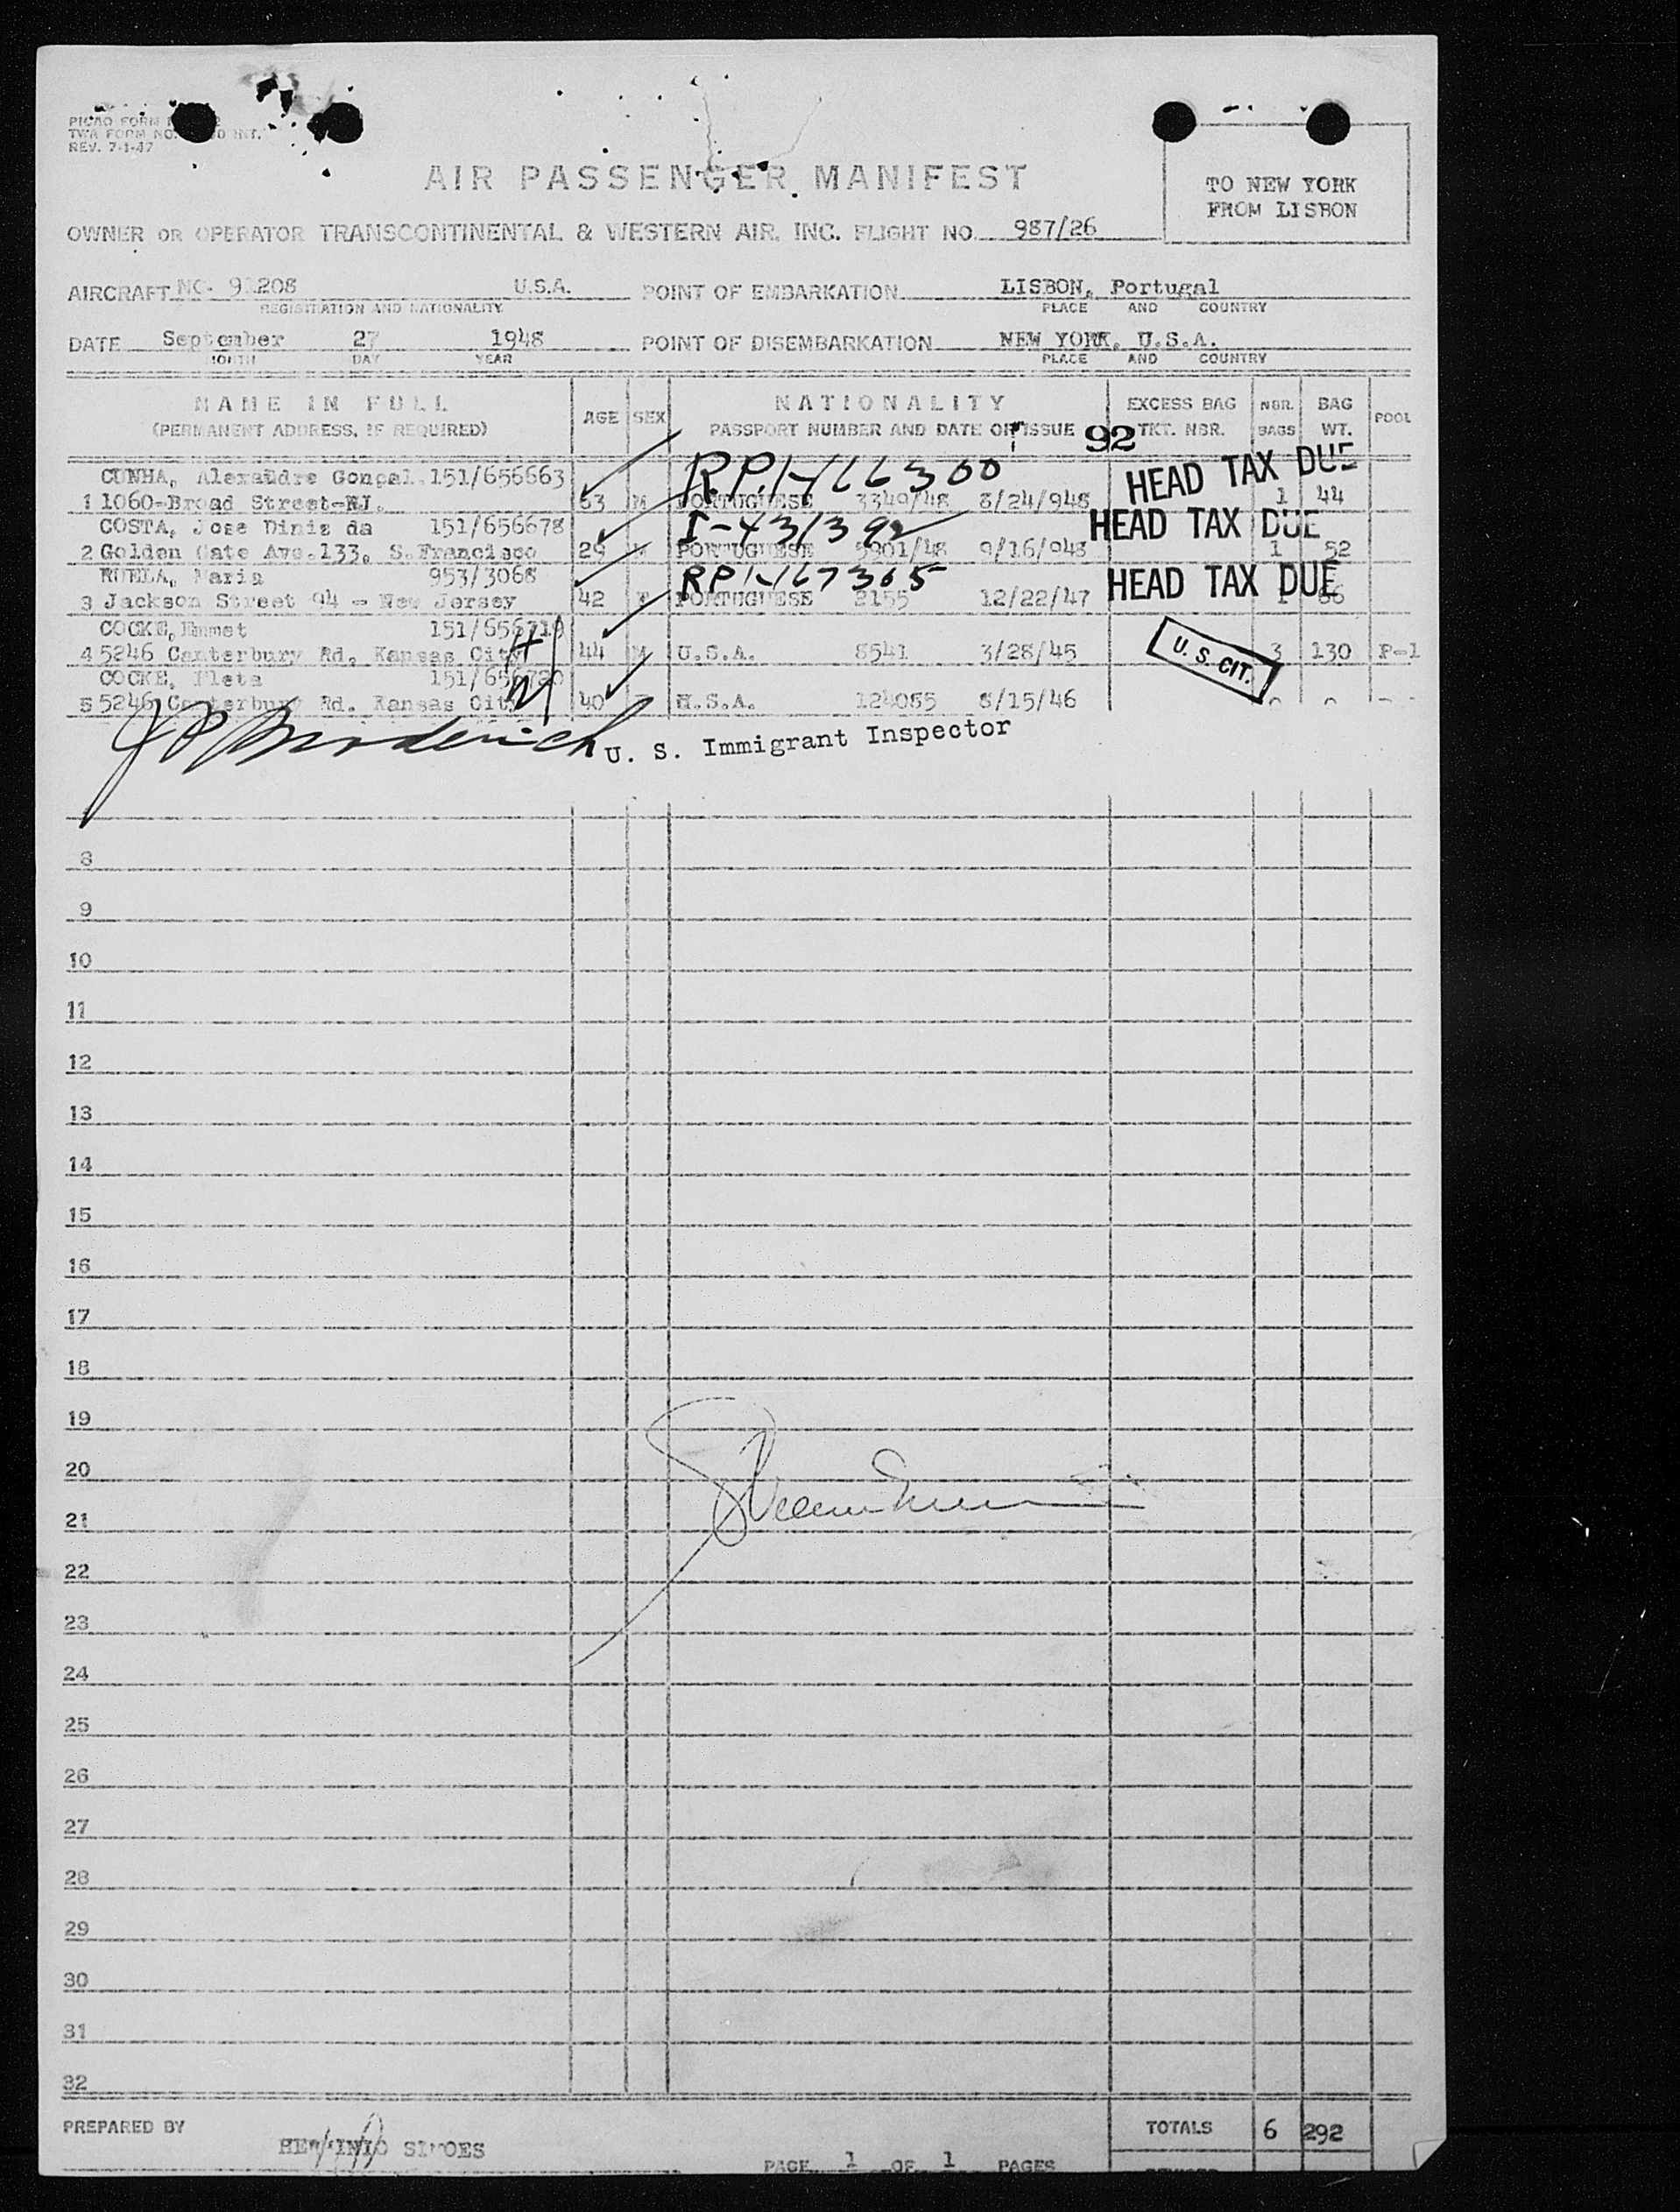 REV. 7-1-47
AIR PASSENGER MANIFEST
TO NEW YORK
FROM LISBON
OWNER OR OPERATOR TRANSCONTINENTAL & WESTERN AIR, INC. FLIGHT NO. 987/26
AIRCRAFT NC- 91208 U.S.A. POINT OF EMBARKATION LISBON, Portugal
REGISTRATION AND NATIONALITY PLACE AND COUNTRY
DATE September 27 1948 POINT OF DISEMBARKATION NEW YORK, U.S.A.
MONTH DAY YEAR PLACE AND COUNTRY
NAME IN FULL AGE SEX NATIONALITY EXCESS BAG NBR. BAG POOL
(PERMANENT ADDRESS, IF REQUIRED) PASSPORT NUMBER AND DATE OF ISSUE 92 TKT. NBR. BAGS WT.
CUNHA, Alexandre Gonçal. 151/656663 RP.1-166300 HEAD TAX DUE
1 1060-Broad Street-NJ. 53 M PORTUGUESE 3349/48 8/24/948 1 44
COSTA, Jose Diniz da 151/656678 I-431392 HEAD TAX DUE
2 Golden Gate Ave.133, S.Francisco 29 M PORTUGUESE 5901/48 9/16/948 1 52
RUELA, Maria 953/3068 RP1-167365 HEAD TAX DUE
3 Jackson Street 94 - New Jersey 42 F PORTUGUESE 2155 12/22/47 1 66
COCKE, Emmet 151/656719
4 5246 Canterbury Rd, Kansas City 44 M U.S.A. 8541 3/28/45 U. S. CIT. 3 130 P-1
COCKE, Fleta 151/656720
5 5246 Canterbury Rd. Kansas City 40 F U.S.A. 124085 8/15/46
U. S. Immigrant Inspector
8
9
10
11
12
13
14
15
16
17
18
19
20
21
22
23
24
25
26
27
28
29
30
31
32
PREPARED BY HERMINIO SIMOES TOTALS 6 292
PAGE 1 OF 1 PAGES